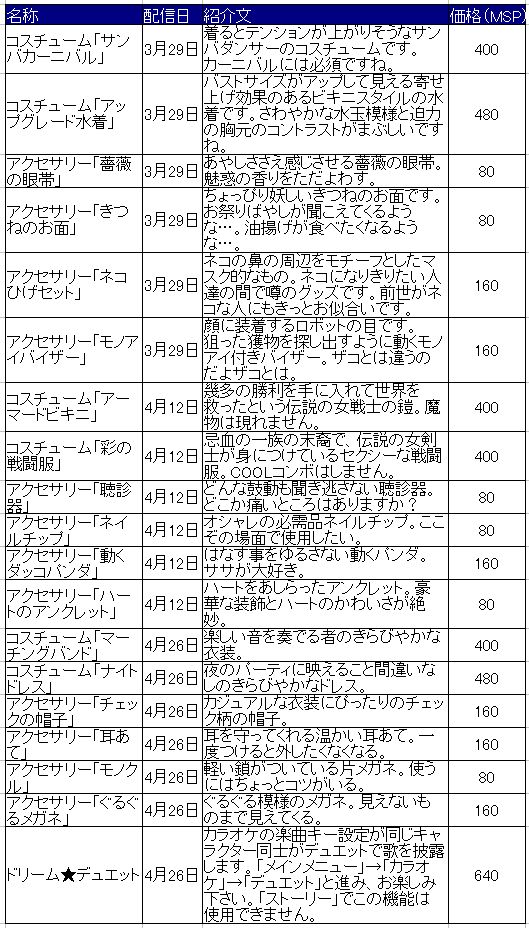 名称 配信日 紹介文 価格(MSP)
コスチューム「サン
バカーニバル」
3月29日
着るとテンションが上がりそうなサン
バダンサーのコスチュームです。
カーニバルには必須ですね。
400
コスチューム「アッ
プグレード水着」
3月29日
バストサイズがアップして見える寄せ
上げ効果のあるビキニスタイルの水
着です。さわやかな水玉模様と迫力
の胸元のコントラストがまぶしいです
ね。
480
アクセサリー「薔薇
の眼帯」
3月29日
あやしささえ感じさせる薔薇の眼帯。
魅惑の香りをただよわす。
80
アクセサリー「きつ
ねのお面」
3月29日
ちょっぴり妖しいきつねのお面です。
お祭りばやしが聞こえてくるよう
な…。油揚げが食べたくなるよう
な…。
80
アクセサリー「ネコ
ひげセット」
3月29日
ネコの鼻の周辺をモチーフとしたマ
スク的なもの。ネコになりきりたい人
達の間で噂のグッズです。前世がネ
コな人にもきっとお似合いです。
160
アクセサリー「モノア
イバイザー」
3月29日
顔に装着するロボットの目です。
狙った獲物を探し出すように動くモノ
アイ付きバイザー。ザコとは違うの
だよザコとは。
160
コスチューム「アー
マードビキニ」
4月12日
幾多の勝利を手に入れて世界を
救ったという伝説の女戦士の鎧。魔
物は現れません。
400
コスチューム「彩の
戦闘服」
4月12日
忌血の一族の末裔で、伝説の女剣
士が身につけているセクシーな戦闘
服。COOLコンボはしません。
400
アクセサリー「聴診
器」
4月12日
どんな鼓動も聞き逃さない聴診器。
どこか痛いところはありますか？
80
アクセサリー「ネイ
ルチップ」
4月12日
オシャレの必需品ネイルチップ。ここ
ぞの場面で使用したい。
80
アクセサリー「動く
ダッコパンダ」
4月12日
はなす事をゆるさない動くパンダ。
ササが大好き。
160
アクセサリー「ハー
トのアンクレット」
4月12日
ハートをあしらったアンクレット。豪
華な装飾とハートのかわいさが絶
妙。
80
コスチューム「マー
チングバンド」
4月26日
楽しい音を奏でる者のきらびやかな
衣装。
400
コスチューム「ナイト
ドレス」
4月26日
夜のパーティに映えること間違いな
しのきらびやかなドレス。
480
アクセサリー「チェッ
クの帽子」
4月26日
カジュアルな衣装にぴったりのチェッ
ク柄の帽子。
160
アクセサリー「耳あ
て」
4月26日
耳を守ってくれる温かい耳あて。一
度つけると外したくなくなる。
160
アクセサリー「モノク
ル」
4月26日
軽い鎖がついている片メガネ。使う
にはちょっとコツがいる。
80
アクセサリー「ぐるぐ
るメガネ」
4月26日
ぐるぐる模様のメガネ。見えないも
のまで見えてくる。
160
ドリーム★デュエット
4月26日
カラオケの楽曲キー設定が同じキャ
ラクター同士がデュエットで歌を披露
します。「メインメニュー」→「カラオ
ケ」→「デュエット」と進み、お楽しみ
下さい。「ストーリー」でこの機能は
使用できません。
640